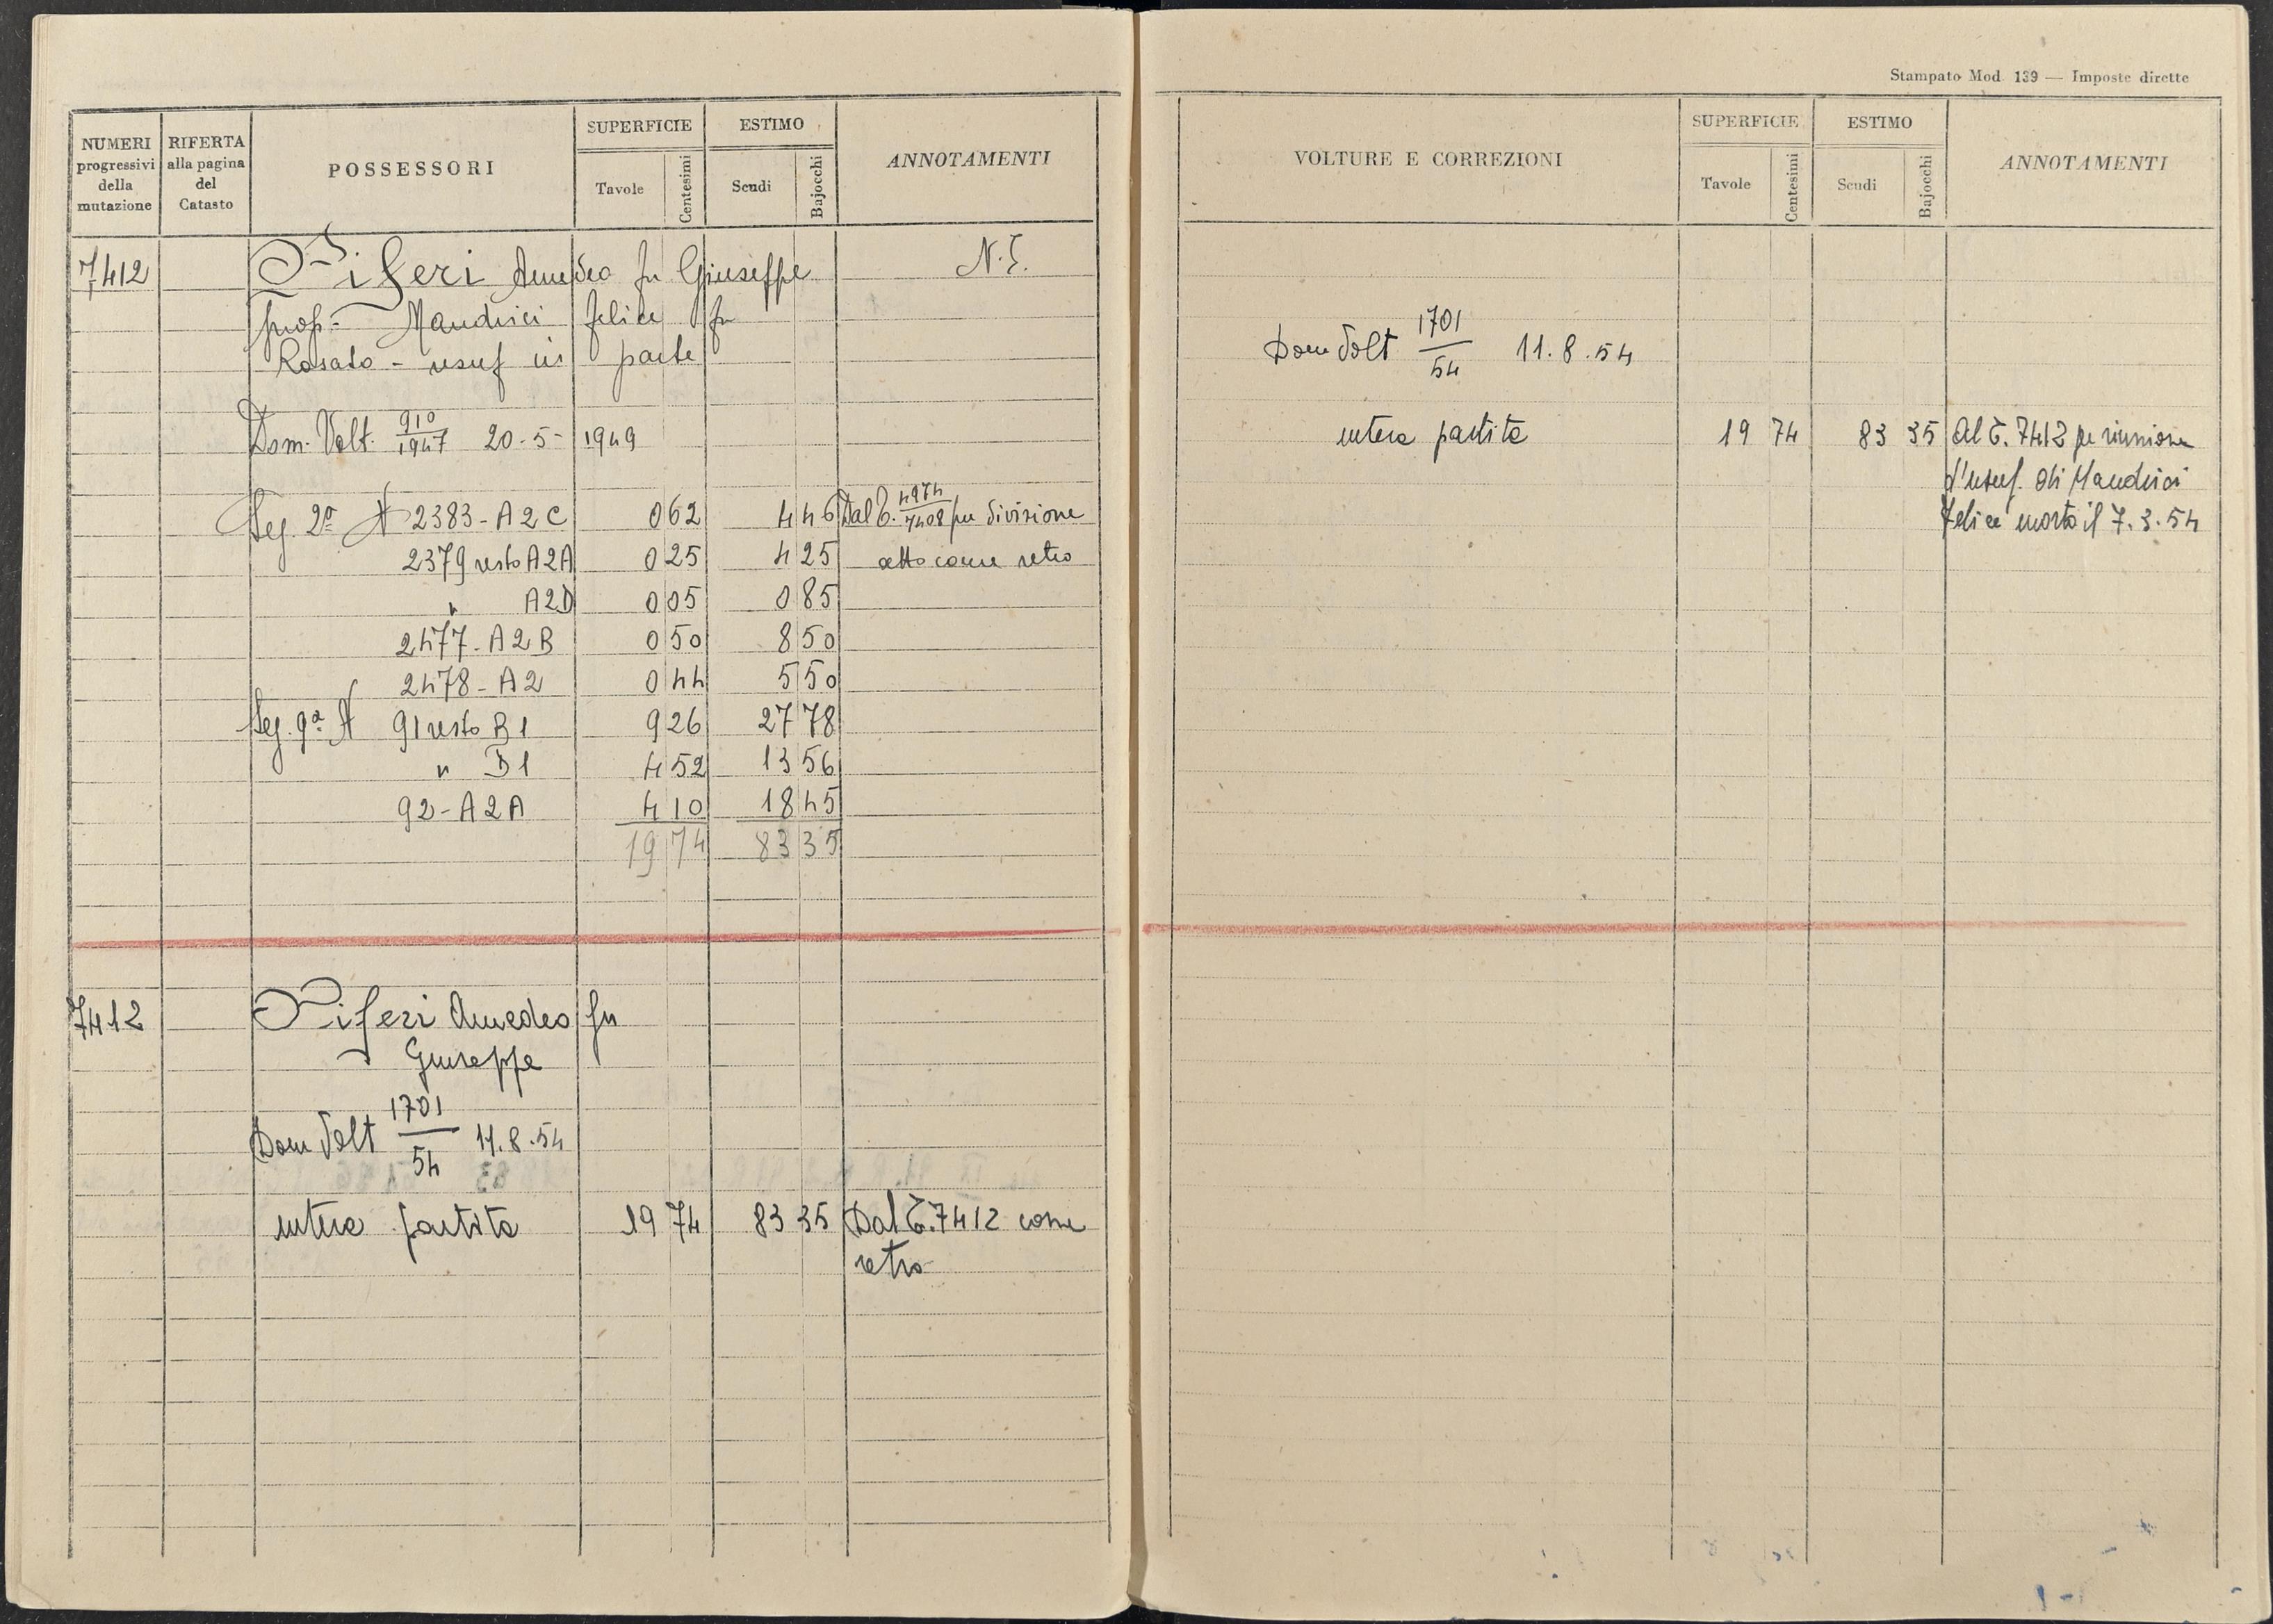 NUMERI progressivi della mutazione | RIFERTA alla pagina del Catasto | POSSESSORI | SUPERFICIE Tavole Centesimi | ESTIMO Scudi Bajocchi | ANNOTAMENTI
7412 Piferi Amedeo fu Giuseppe N.I.
prop- Mandrici felice fu
Rosato - usuf in parte
Dom. Volt. 910/1947 20-5-1949
Seg. 2ª N 2383-A2C 0 62 4 46 Dal C. 4974/7408 per divisione
2379 resto A2A 0 25 4 25 atto come retro
" A2D 0 05 0 85
2477-A2B 0 50 8 50
2478-A2 0 44 5 50
Seg. 9ª N 91 resto B1 9 26 27 78
" D1 4 52 13 56
92-A2A 4 10 18 45
19 74 83 35
7412 Piferi Amedeo fu
Giuseppe
Dom Volt 1701/54 11.8.54
intera partita 19 74 83 35 Dal C. 7412 come
retro
Stampato Mod 139 — Imposte dirette
VOLTURE E CORREZIONI | SUPERFICIE Tavole Centesimi | ESTIMO Scudi Bajocchi | ANNOTAMENTI
Dom Volt 1701/54 11.8.54
intera partita 19 74 83 35 Al C. 7412 per riunione
d'usuf. di Mandrici
Felice morto il 7.3.54